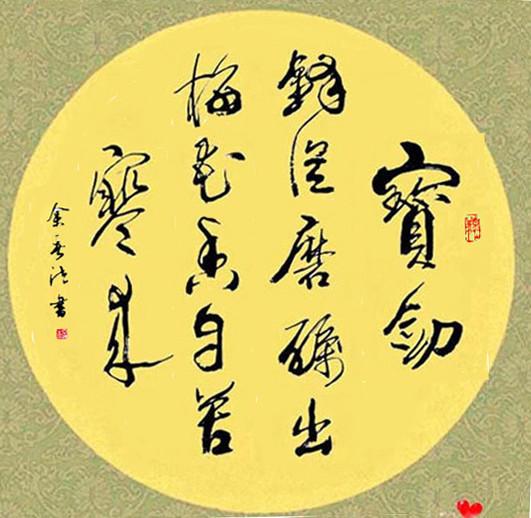 寶劍
鋒從磨礪出
梅花香自苦
寒來
余書